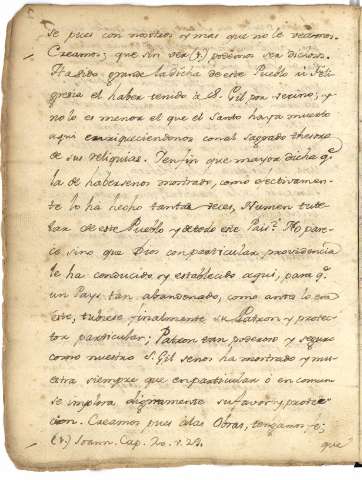 se pues con nosotros y mas que no le veamos.
Creamos; que sin ver (r.) podemos ser dichosos.
Ha sido grande la dicha de este Pueblo ù feli-
gresia el haber tenido à S. Gil por vecino; y
no lo es menor el que el Santo haya muerto
aqui enriqueciendonos con el sagrado thesoro
de sus reliquias. Y en fin que mayor dicha q.e
la de habersenos mostrado, como efectivamen-
te lo ha hecho tantas veces, Numen tute-
lar de este Pueblo y de todo este Pais? No pare-
ce sino que Dios con particular providencia
le ha conducido y establecido aqui, para q.e
un Pays tan abandonado, como antes lo era
este, tubiese finalmente su Patron y protec-
tor particular; Patron tan poderoso y seguro
como nuestro S. Gil se nos ha mostrado y mu-
estra siempre que en particular ò en comun
se implora dignamente su favor y protec-
cion. Creamos pues à las Obras, tengamos
(r.) Joann. Cap. 20. v. 29.
que